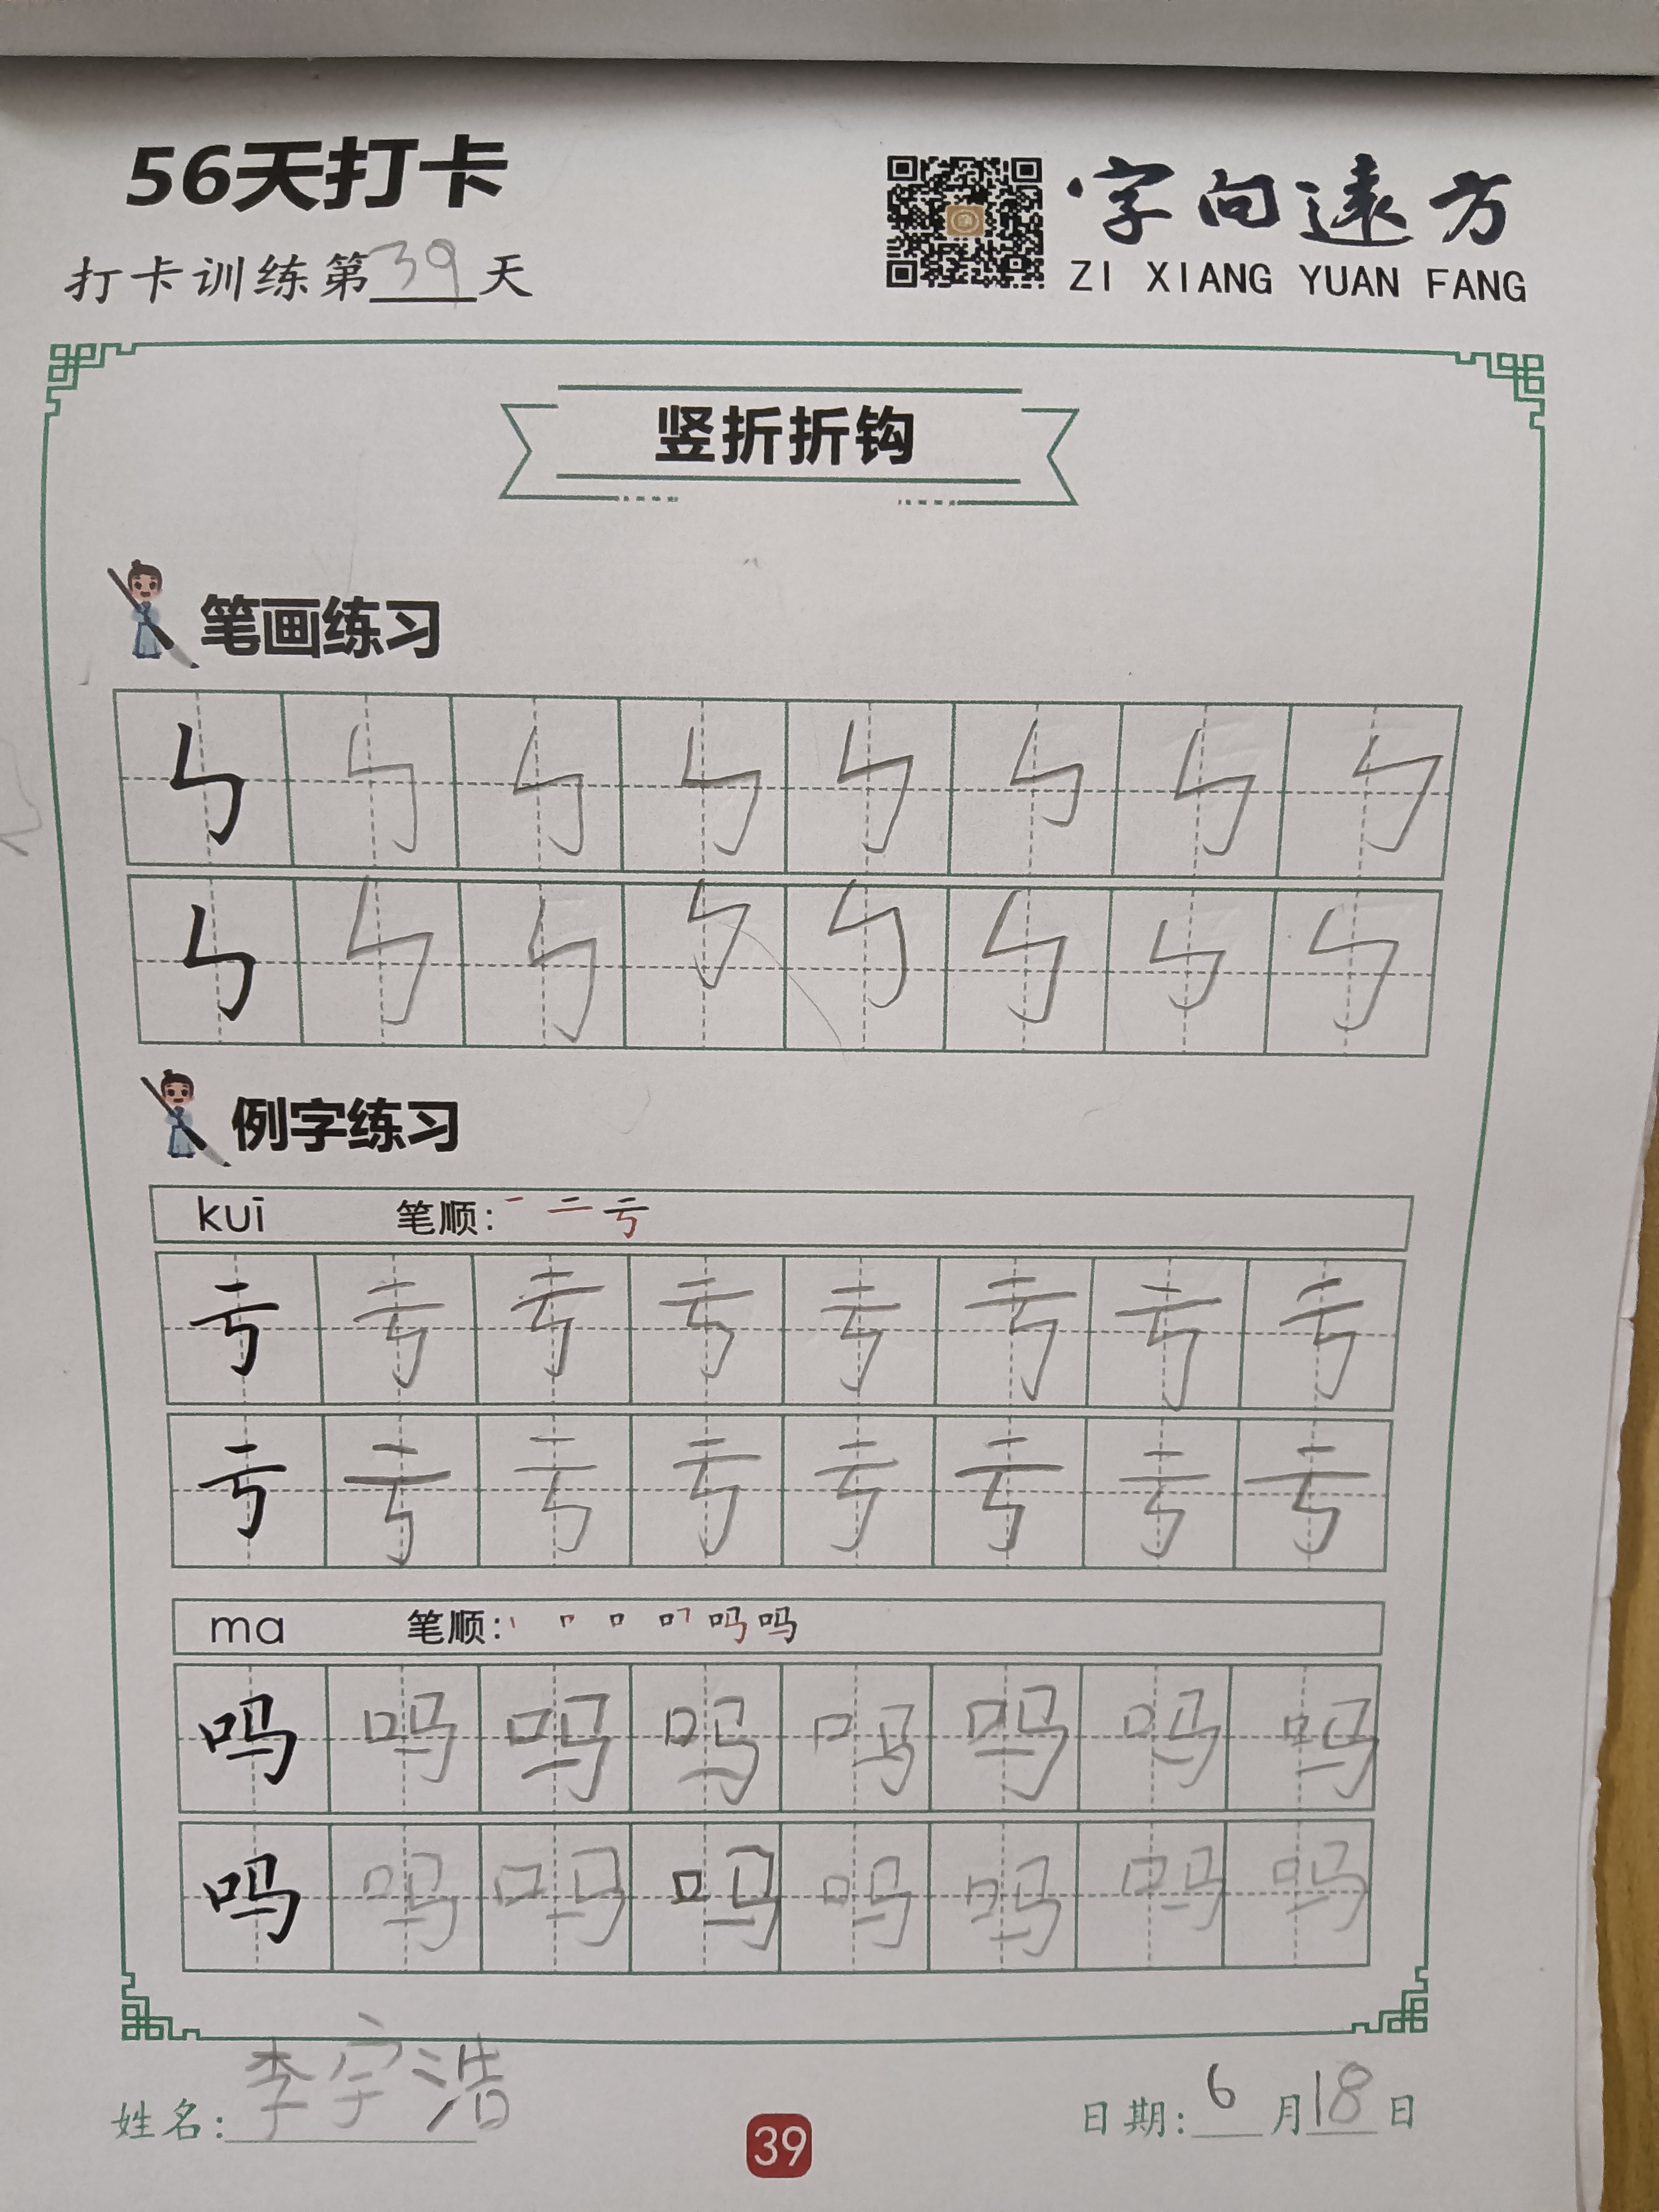 56天打卡
字向遠方
打卡训练第39天
ZI XIANG YUAN FANG
竖折折钩
笔画练习
㇉ ㇉ ㇉ ㇉ ㇉ ㇉ ㇉ ㇉
㇉ ㇉ ㇉ ㇉ ㇉ ㇉ ㇉ ㇉
例字练习
kuī 笔顺: 一 二 亏
亏 亏 亏 亏 亏 亏 亏 亏
亏 亏 亏 亏 亏 亏 亏 亏
ma 笔顺: 丨 冂 口 叼 吗 吗
吗 吗 吗 吗 吗 吗 吗 吗
吗 吗 吗 吗 吗 吗 吗 吗
姓名: 李宇浩
日期: 6月18日
39